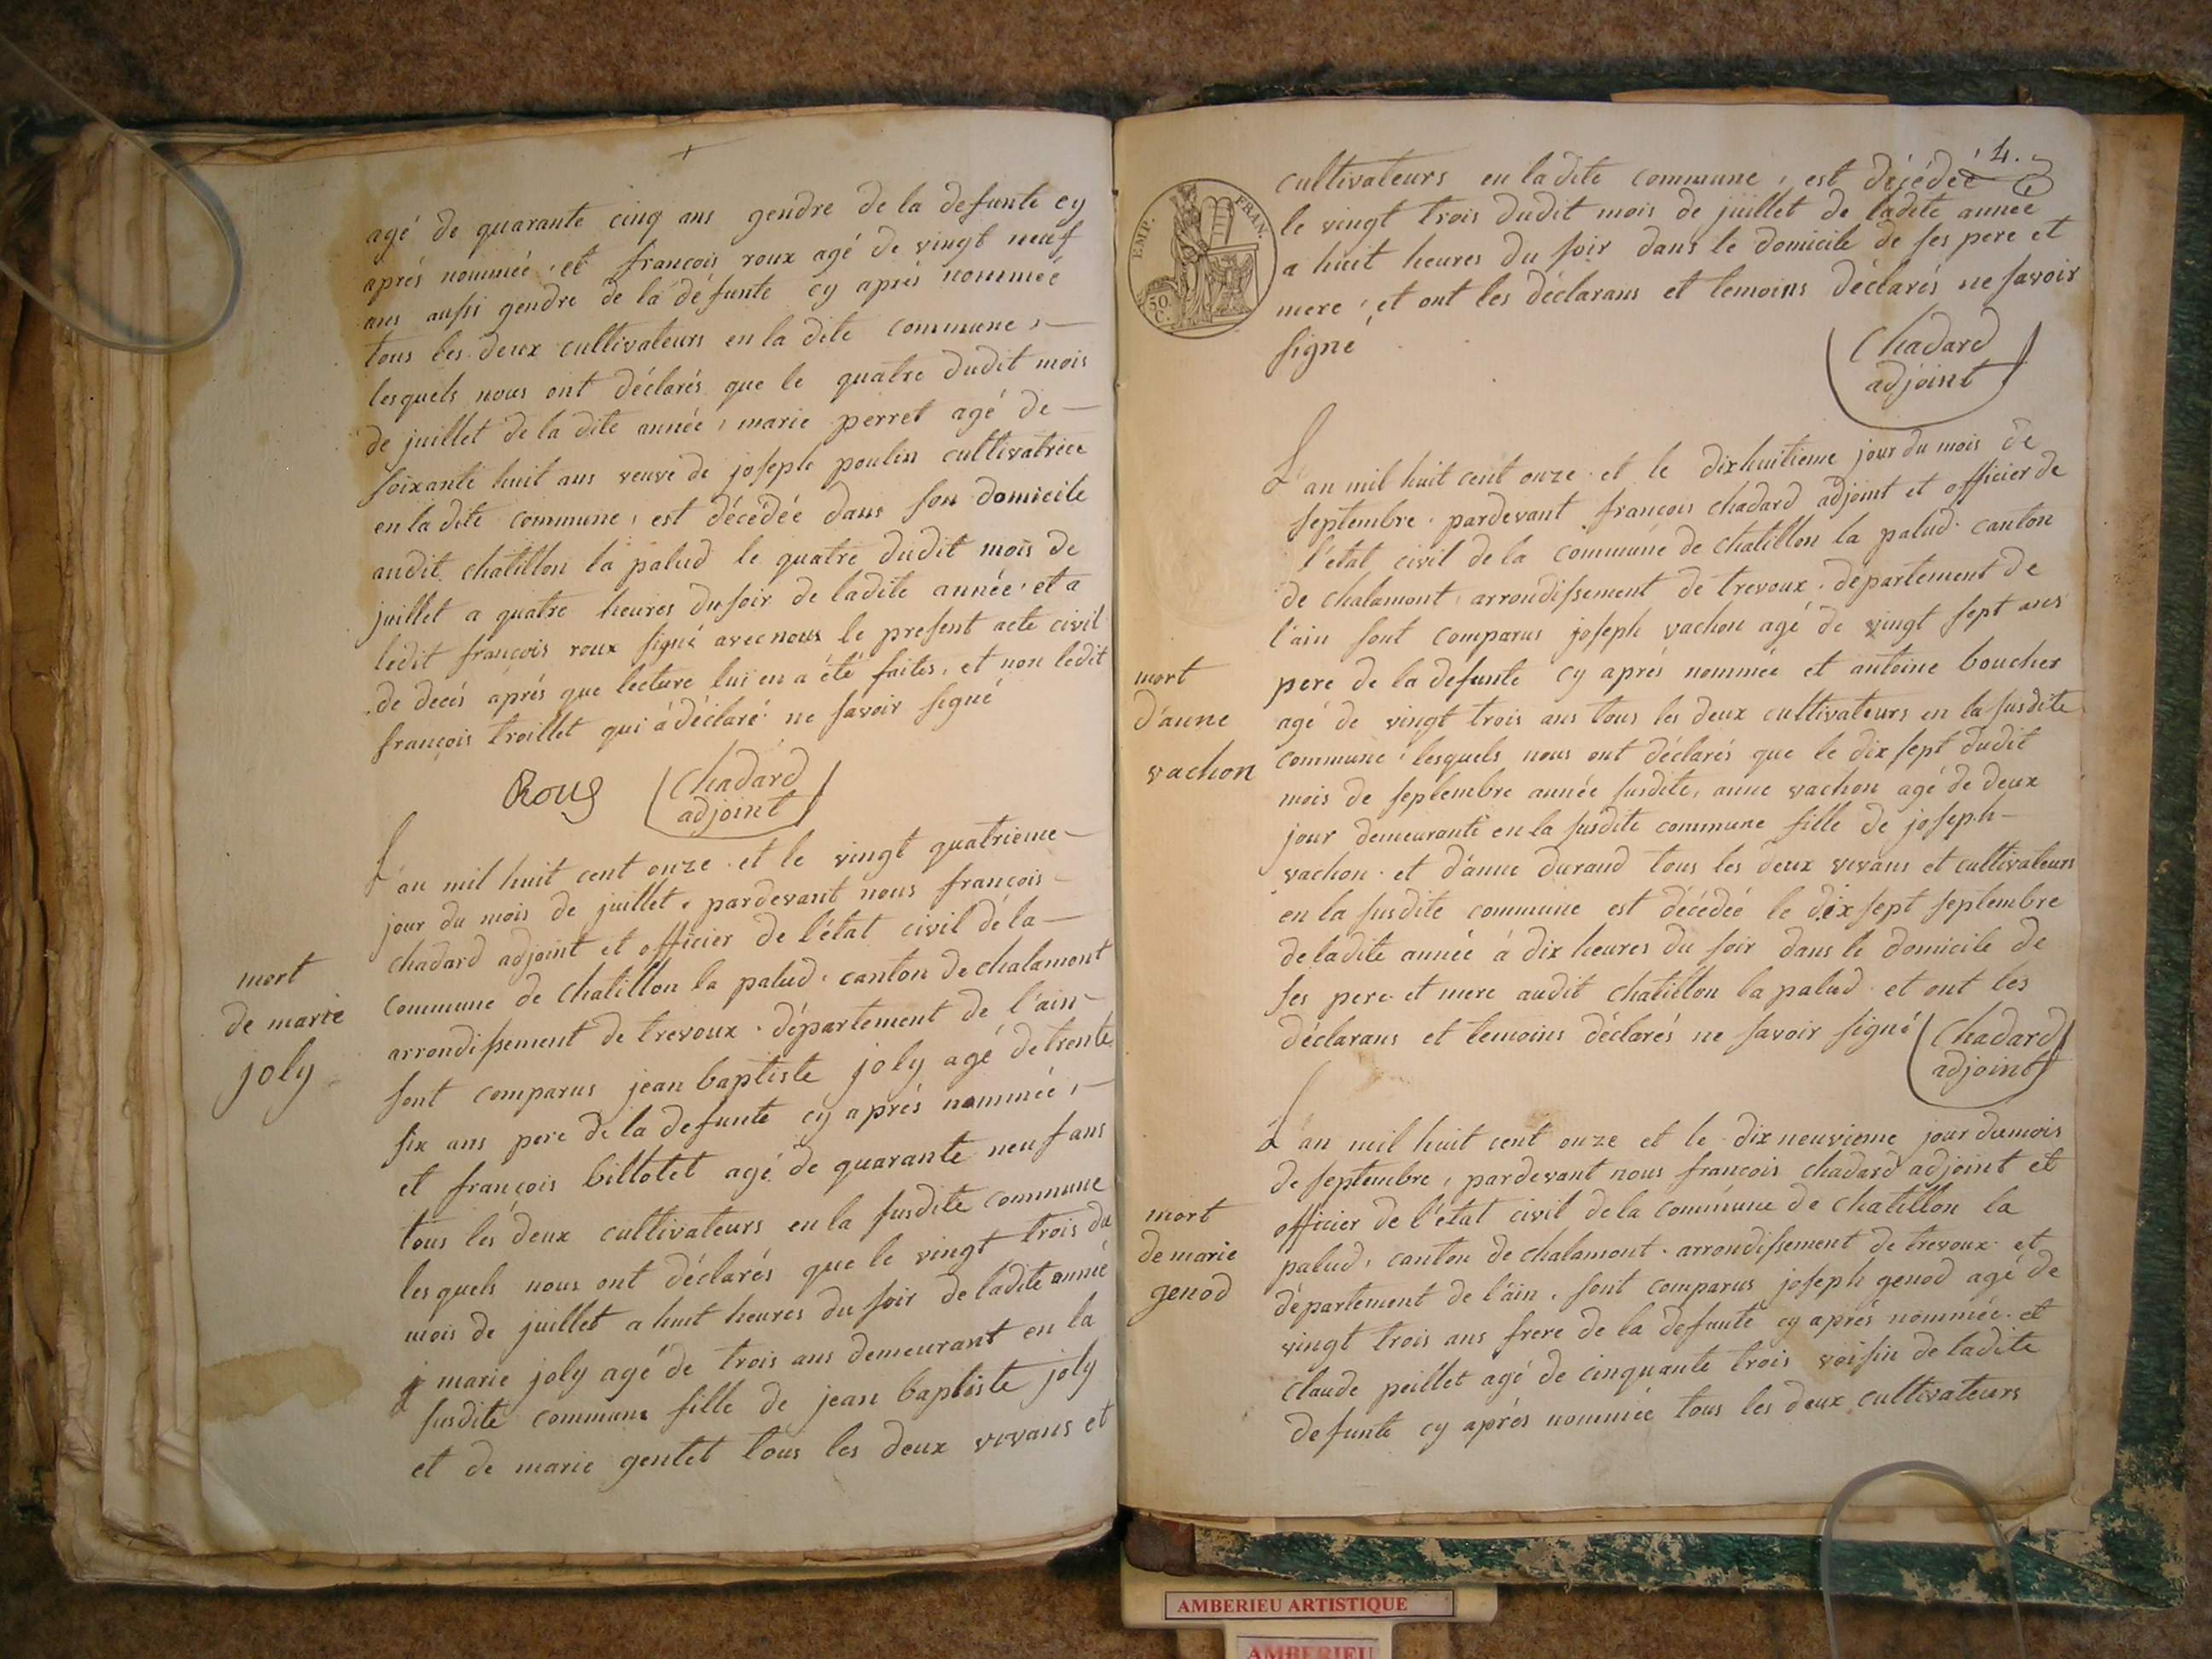 agé de quarante cinq ans gendre de la defunte cy
aprés nommée, et françois roux agé de vingt neuf
ans aussi gendre de la défunte cy aprés nommée
tous les deux cultivateurs en la dite commune,
lesquels nous ont déclarés que le quatre dudit mois
de juillet de la dite année, marie perret agé de
soixante huit ans veuve de joseph poulin cultivatrice
en la dite commune, est décédée dans son domicile
audit chatillon la palud le quatre dudit mois de
juillet a quatre heures du soir de ladite année et a
ledit françois roux signé avec nous le present acte civil
de decés aprés que lecture lui en a été faites, et non ledit
françois troillet qui a déclaré ne savoir signé
Roux
Chadard
adjoint
mort
de marie
joly
L'an mil huit cent onze et le vingt quatrieme
jour du mois de juillet, pardevant nous françois
chadard adjoint et officier de l'état civil de la
commune de chatillon la palud, canton de chalamont
arrondissement de trevoux, département de l'ain
sont comparus jean baptiste joly agé de trente
six ans pere de la defunte cy aprés nommée,
et françois billotet agé de quarante neuf ans
tous les deux cultivateurs en la susdite commune
lesquels nous ont déclarés que le vingt trois du
mois de juillet a huit heures du soir de ladite année
marie joly agé de trois ans demeurant en la
susdite commune fille de jean baptiste joly
et de marie gentet tous les deux vivans et
4.
EMP. FRAN.
50 C.
cultivateurs en la dite commune, est déjédée
le vingt trois dudit mois de juillet de ladite année
a huit heures du soir dans le domicile de ses pere et
mere, et ont les déclarans et temoins déclarés ne savoir
signé
Chadard
adjoint
mort
d'anne
vachon
L'an mil huit cent onze et le dixhuitieme jour du mois de
septembre, pardevant françois chadard adjoint et officier de
l'état civil de la commune de chatillon la palud, canton
de chalamont, arrondissement de trevoux, departement de
l'ain sont comparus joseph vachon agé de vingt sept ans
pere de la defunte cy aprés nommée et antoine boucher
agé de vingt trois ans tous les deux cultivateurs en la susdite
commune, lesquels nous ont déclarés que le dix sept dudit
mois de septembre année susdite, anne vachon agé de deux
jour demeurante en la susdite commune fille de joseph
vachon et d'anne durand tous les deux vivans et cultivateurs
en la susdite commune est décédée le dix sept septembre
de ladite année à dix heures du soir dans le domicile de
ses pere et mere audit chatillon la palud et ont les
déclarans et temoins déclarés ne savoir signé
Chadard
adjoint
mort
de marie
genod
L'an mil huit cent onze et le dix neuvieme jour du mois
de septembre, pardevant nous françois chadard adjoint et
officier de l'état civil de la commune de chatillon la
palud, canton de chalamont, arrondissement de trevoux et
département de l'ain, sont comparus joseph genod agé de
vingt trois ans frere de la defunte cy aprés nommée et
claude peillet agé de cinquante trois voisin de ladite
defunte cy aprés nommée tous les deux cultivateurs
AMBERIEU ARTISTIQUE
AMBERIEU